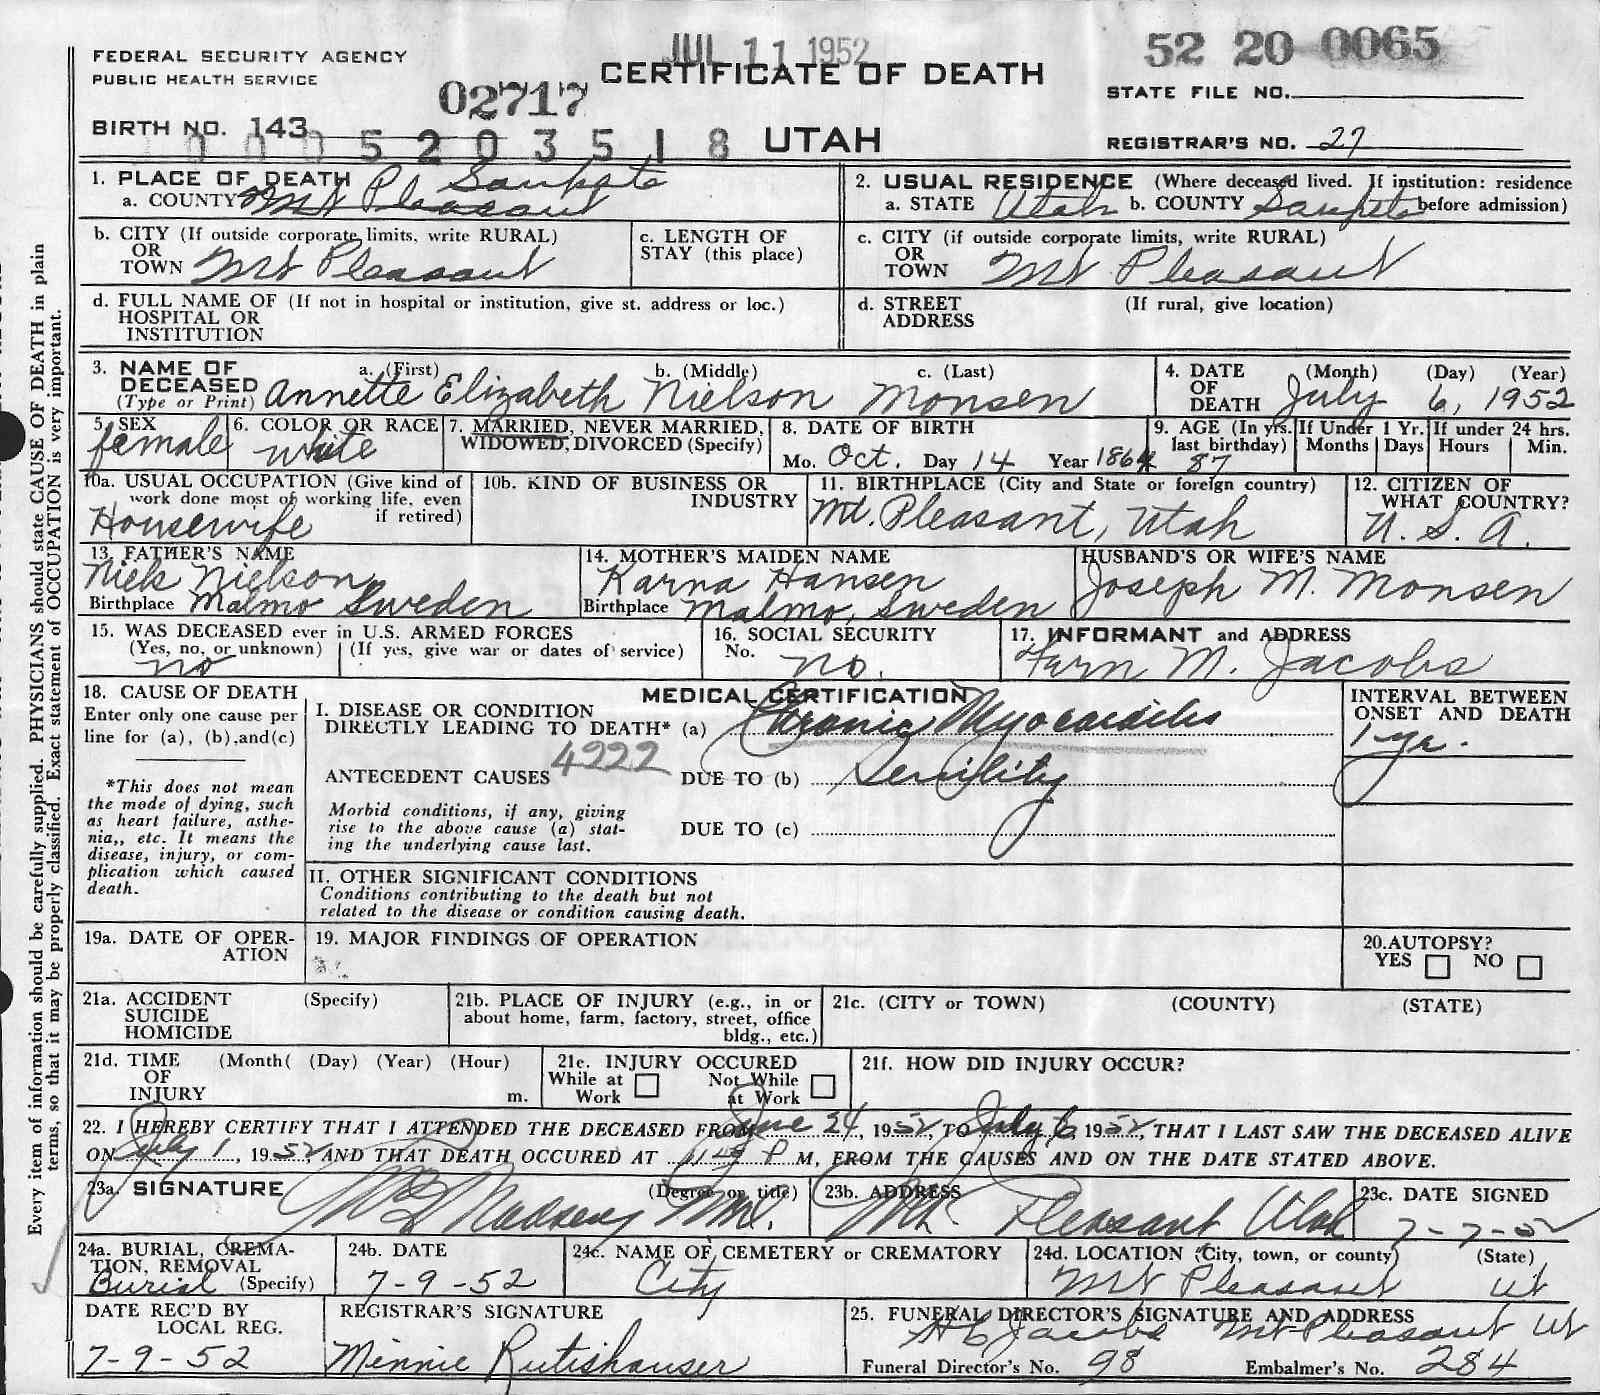 JUL 11 1952
52 20 0065
FEDERAL SECURITY AGENCY
PUBLIC HEALTH SERVICE
CERTIFICATE OF DEATH
02717
STATE FILE NO.
BIRTH NO. 143
0 0 0 5 2 0 3 5 1 8
UTAH
REGISTRAR'S NO. 27
1. PLACE OF DEATH Sanpete
a. COUNTY Mt Pleasant
2. USUAL RESIDENCE (Where deceased lived. If institution: residence
a. STATE Utah b. COUNTY Sanpete before admission)
b. CITY (If outside corporate limits, write RURAL)
OR
TOWN Mt Pleasant
c. LENGTH OF
STAY (this place)
c. CITY (if outside corporate limits, write RURAL)
OR
TOWN Mt Pleasant
d. FULL NAME OF (If not in hospital or institution, give st. address or loc.)
HOSPITAL OR
INSTITUTION
d. STREET (If rural, give location)
ADDRESS
3. NAME OF a. (First) b. (Middle) c. (Last)
DECEASED
(Type or Print) Annette Elizabeth Nielson Monsen
4. DATE (Month) (Day) (Year)
OF
DEATH July 6, 1952
5. SEX
female
6. COLOR OR RACE
white
7. MARRIED, NEVER MARRIED,
WIDOWED, DIVORCED (Specify)
8. DATE OF BIRTH
Mo. Oct. Day 14 Year 1864
9. AGE (In yrs.
last birthday)
87
If Under 1 Yr.
Months Days
If under 24 hrs.
Hours Min.
10a. USUAL OCCUPATION (Give kind of
work done most of working life, even
if retired)
Housewife
10b. KIND OF BUSINESS OR
INDUSTRY
11. BIRTHPLACE (City and State or foreign country)
Mt. Pleasant, Utah
12. CITIZEN OF
WHAT COUNTRY?
U. S. A.
13. FATHER'S NAME
Niels Nielson
Birthplace Malmo Sweden
14. MOTHER'S MAIDEN NAME
Karna Hansen
Birthplace Malmo, Sweden
HUSBAND'S OR WIFE'S NAME
Joseph M. Monsen
15. WAS DECEASED ever in U.S. ARMED FORCES
(Yes, no, or unknown) (If yes, give war or dates of service)
no
16. SOCIAL SECURITY
No. no.
17. INFORMANT and ADDRESS
Fern M. Jacobs
18. CAUSE OF DEATH
Enter only one cause per
line for (a), (b), and (c)
*This does not mean
the mode of dying, such
as heart failure, asthe-
nia,, etc. It means the
disease, injury, or com-
plication which caused
death.
MEDICAL CERTIFICATION
I. DISEASE OR CONDITION
DIRECTLY LEADING TO DEATH* (a) Chronic Myocarditis
4222
ANTECEDENT CAUSES DUE TO (b) Senility
Morbid conditions, if any, giving
rise to the above cause (a) stat-
ing the underlying cause last.
DUE TO (c)
INTERVAL BETWEEN
ONSET AND DEATH
1 yr.
II. OTHER SIGNIFICANT CONDITIONS
Conditions contributing to the death but not
related to the disease or condition causing death.
19a. DATE OF OPER-
ATION
19. MAJOR FINDINGS OF OPERATION
20. AUTOPSY?
YES NO
21a. ACCIDENT (Specify)
SUICIDE
HOMICIDE
21b. PLACE OF INJURY (e.g., in or
about home, farm, factory, street, office
bldg., etc.)
21c. (CITY or TOWN) (COUNTY) (STATE)
21d. TIME (Month( (Day) (Year) (Hour)
OF
INJURY m.
21e. INJURY OCCURED
While at Work Not While at Work
21f. HOW DID INJURY OCCUR?
22. I HEREBY CERTIFY THAT I ATTENDED THE DECEASED FROM June 24, 1952, TO July 6, 1952, THAT I LAST SAW THE DECEASED ALIVE
ON July 1, 1952, AND THAT DEATH OCCURED AT P M, FROM THE CAUSES AND ON THE DATE STATED ABOVE.
23a. SIGNATURE (Degree or title)
Madsen M.D.
23b. ADDRESS
Mt. Pleasant Utah
23c. DATE SIGNED
7-7-52
24a. BURIAL, CREMA-
TION, REMOVAL
Burial (Specify)
24b. DATE
7-9-52
24c. NAME OF CEMETERY or CREMATORY
City
24d. LOCATION (City, town, or county) (State)
Mt Pleasant Ut
DATE REC'D BY
LOCAL REG.
7-9-52
REGISTRAR'S SIGNATURE
Minnie Rutishauser
25. FUNERAL DIRECTOR'S SIGNATURE AND ADDRESS
H C Jacobs Mt Pleasant Ut
Funeral Director's No. 98 Embalmer's No. 284
Every item of information should be carefully supplied. PHYSICIANS should state CAUSE OF DEATH in plain
terms, so that it may be properly classified. Exact statement of OCCUPATION is very important.